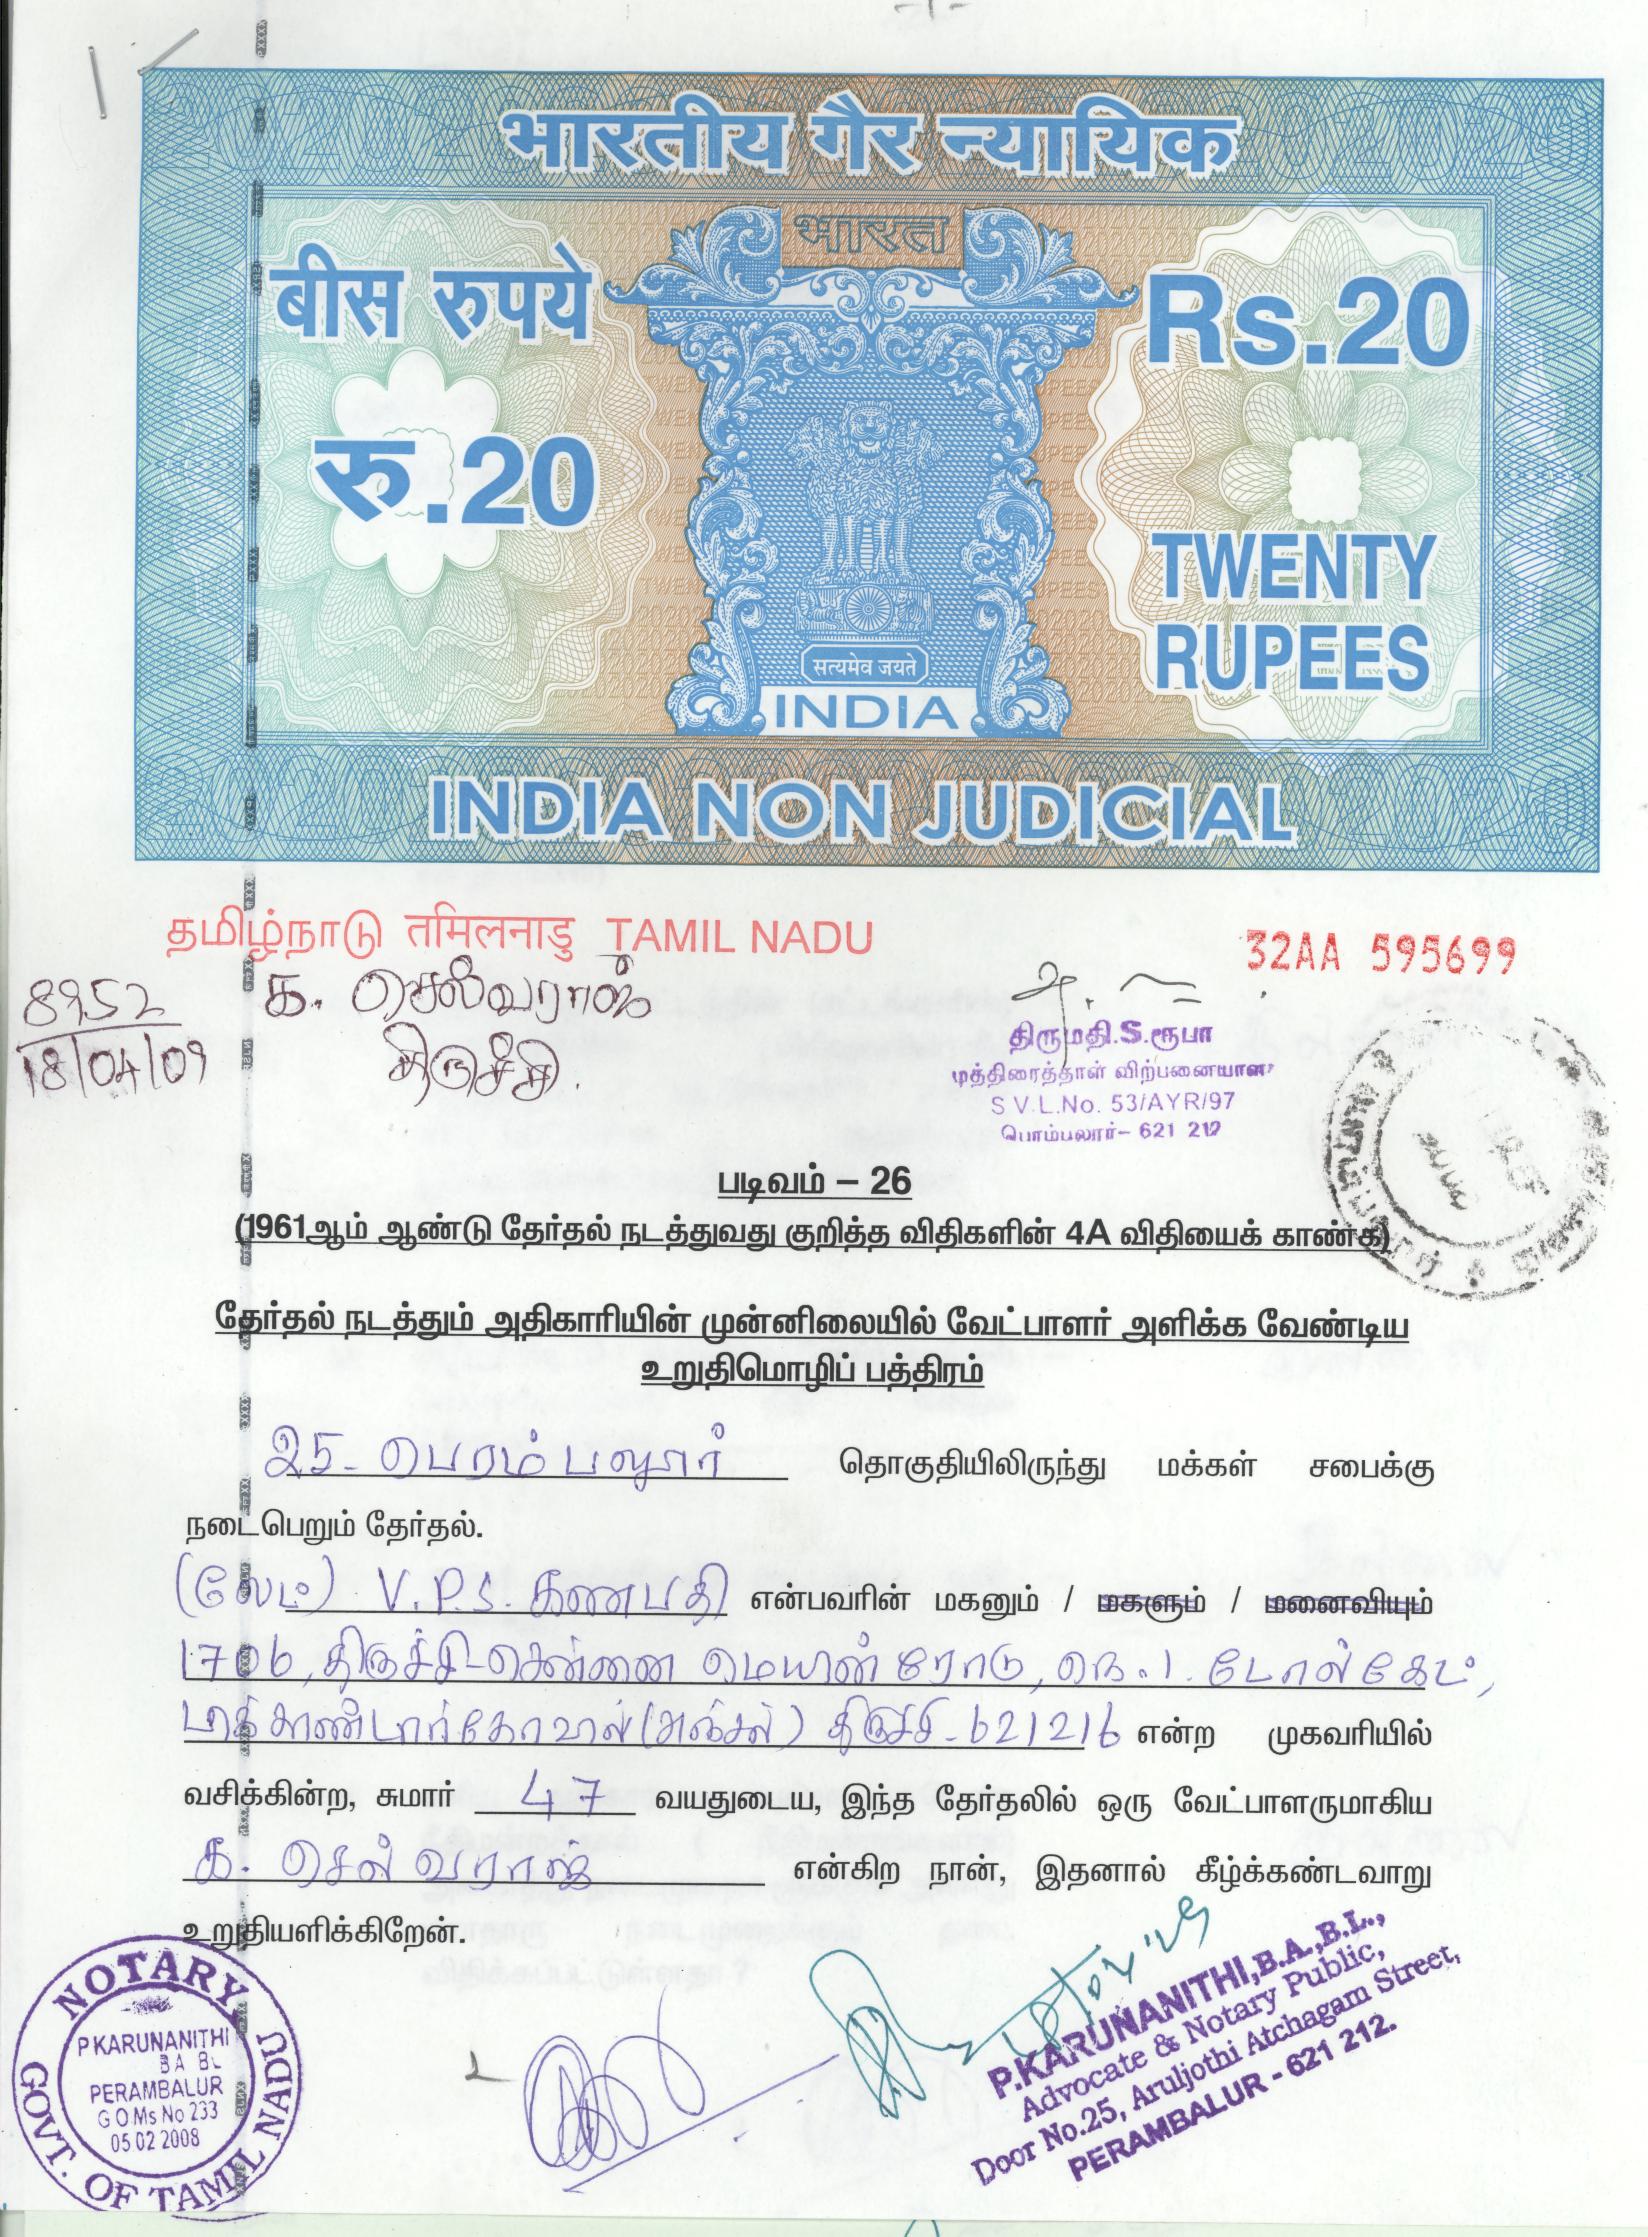 भारतीय गैर न्यायिक
भारत
बीस रुपये
Rs.20
रु.20
TWENTY
RUPEES
सत्यमेव जयते
INDIA
INDIA NON JUDICIAL
தமிழ்நாடு तमिलनाडु TAMIL NADU
32AA 595699
8952
18/04/09
க. செல்வராஜ்
திருச்சி.
திருமதி.S.ரூபா
முத்திரைத்தாள் விற்பனையாள
S V.L.No. 53/AYR/97
621 212
படிவம் – 26
(1961ஆம் ஆண்டு தேர்தல் நடத்துவது குறித்த விதிகளின் 4A விதியைக் காண்க)
தேர்தல் நடத்தும் அதிகாரியின் முன்னிலையில் வேட்பாளர் அளிக்க வேண்டிய
உறுதிமொழிப் பத்திரம்
25- பெரம்பலூர் தொகுதியிலிருந்து மக்கள் சபைக்கு
நடைபெறும் தேர்தல்.
(லேட்) V.P.S. கணபதி என்பவரின் மகனும் / மகளும் / மனைவியும்
1706, திருச்சி-சென்னை மெயின் ரோடு, நெ.1. டோல்கேட்,
(அஞ்சல்) திருச்சி-621216 என்ற முகவரியில்
வசிக்கின்ற, சுமார் 47 வயதுடைய, இந்த தேர்தலில் ஒரு வேட்பாளருமாகிய
க. செல்வராஜ் என்கிற நான், இதனால் கீழ்க்கண்டவாறு
உறுதியளிக்கிறேன்.
NOTARY
P.KARUNANITHI
B A B L
PERAMBALUR
G O Ms No 233
05 02 2008
GOVT. OF TAMIL NADU
P.KARUNANITHI,B.A.,B.L.,
Advocate & Notary Public,
Door No.25, Aruljothi Atchagam Street,
PERAMBALUR - 621 212.